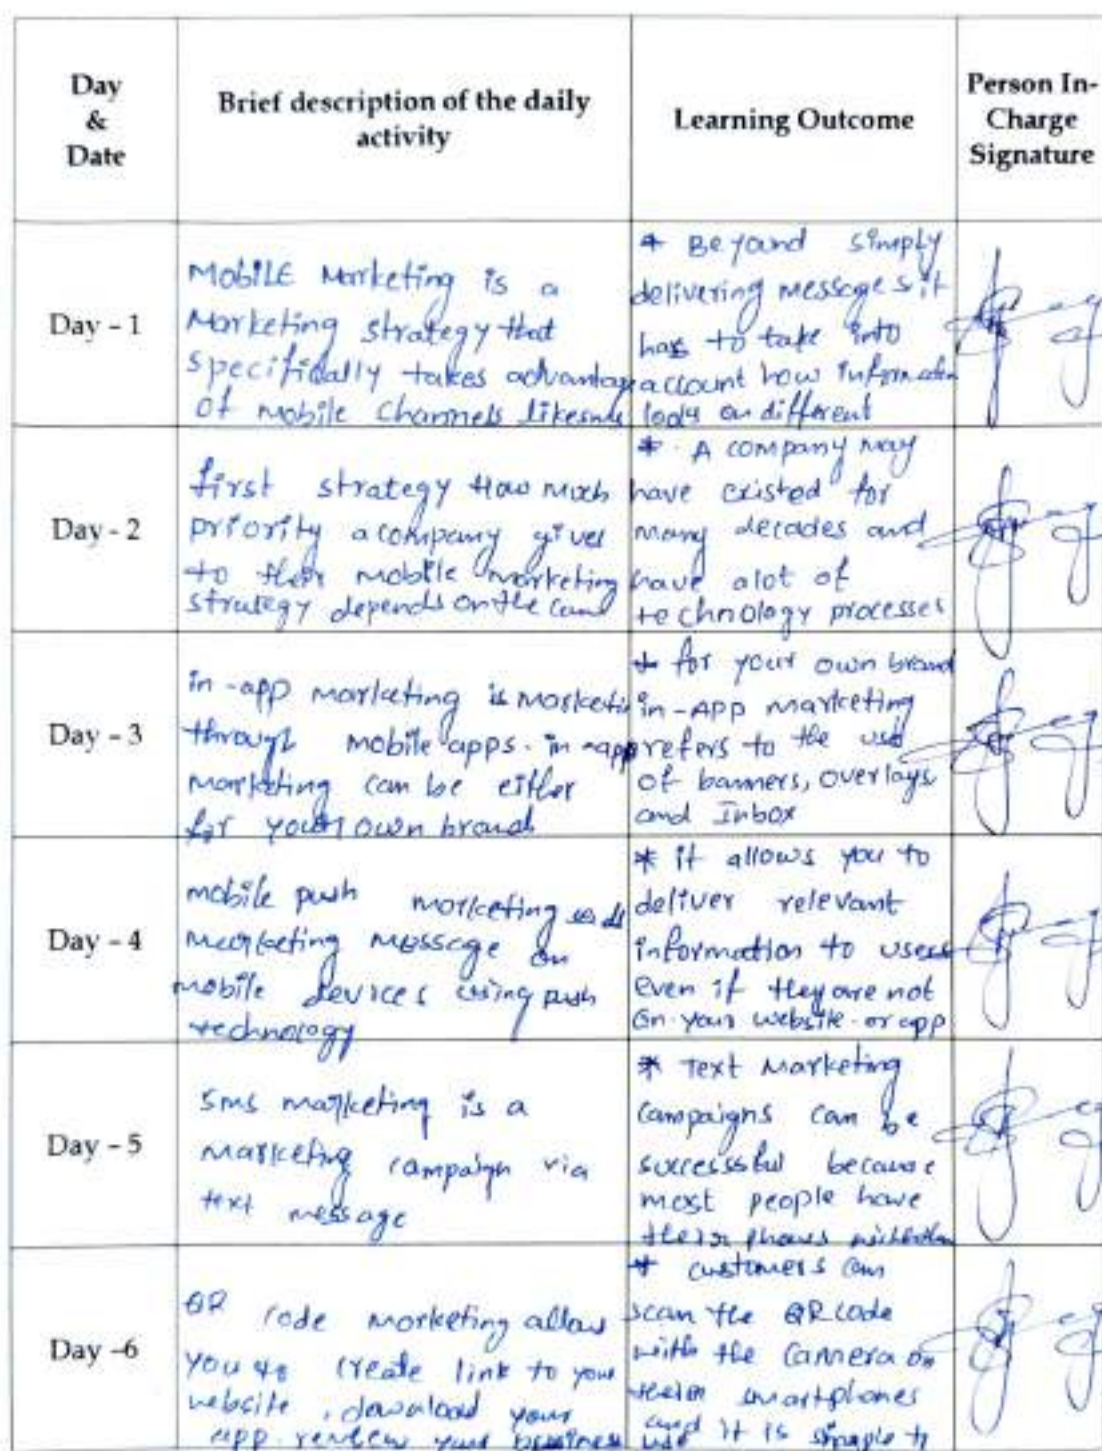 Day
&
Date
Brief description of the daily
activity
Learning Outcome
Person In-
Charge
Signature
Day - 1
MOBILE Marketing is a
Marketing strategy that
specifically takes advantage
of mobile channels like sms
* Beyond simply
delivering messages it
has to take into
account how information
looks on different
Day - 2
first strategy How much
priority a company gives
to their mobile marketing
strategy depends on the
* A company may
have existed for
many decades and
have alot of
technology processes
Day - 3
in-app marketing is marketi
through mobile apps. in-app
marketing can be either
for your own brand
* for your own brand
in-App marketing
refers to the use
of banners, overlays
and Inbox
Day - 4
mobile push marketing
marketing message on
mobile devices using push
technology
* it allows you to
deliver relevant
information to users
even if they are not
on your website or app
Day - 5
sms marketing is a
marketing campaign via
text message
* Text Marketing
campaigns can be
successsful because
most people have
their phones
Day -6
QR code marketing allow
you to create link to your
website, download your
app. review your business
* customers can
scan the QR code
with the camera on
their smartphones
and it is simple to
use